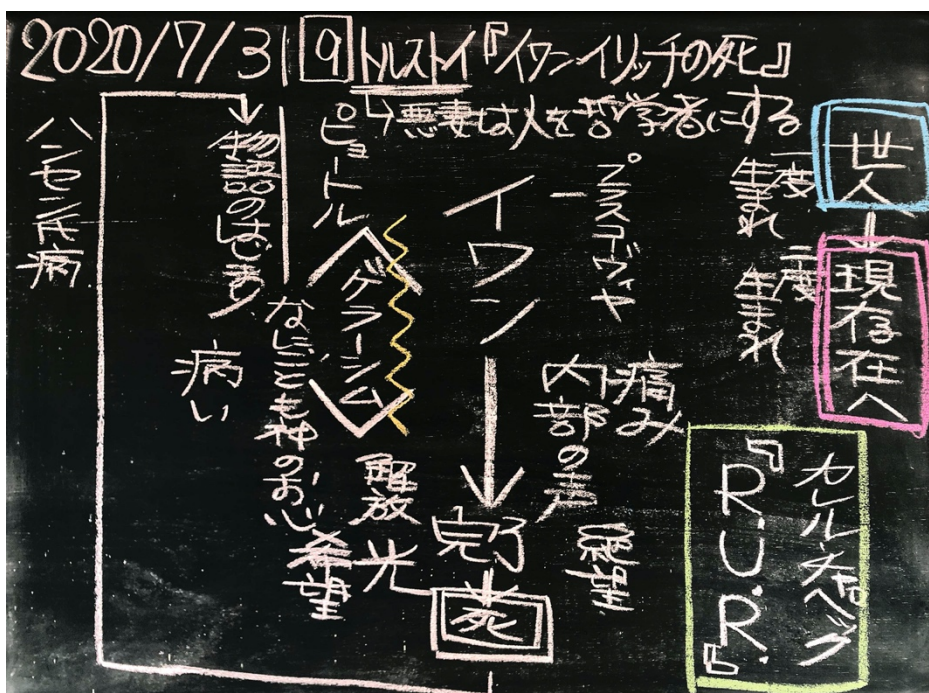 2020/7/31 9 トルストイ『イワン・イリッチの死』
↳悪妻は人を哲学者にする
世人
↓
現存在へ
一度生まれ
二度生まれ
カレル・チャペック
『R.U.R.』
プラスコーヴィヤ
痛み
内部の声
絶望
イワン
完了
死
ゲラーシム
解放
光
ピョートル
なにごとも神のお心
希望
物語のはじまり
病い
ハンセン氏病